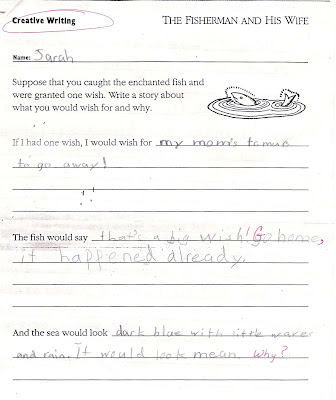 Creative Writing
THE FISHERMAN AND HIS WIFE
Name: Sarah
Suppose that you caught the enchanted fish and
were granted one wish. Write a story about
what you would wish for and why.
If I had one wish, I would wish for my mom's tumur
to go away!
The fish would say that's a big wish! Go home,
it happened already.
And the sea would look dark blue with little waves
and rain. It would look mean. Why?